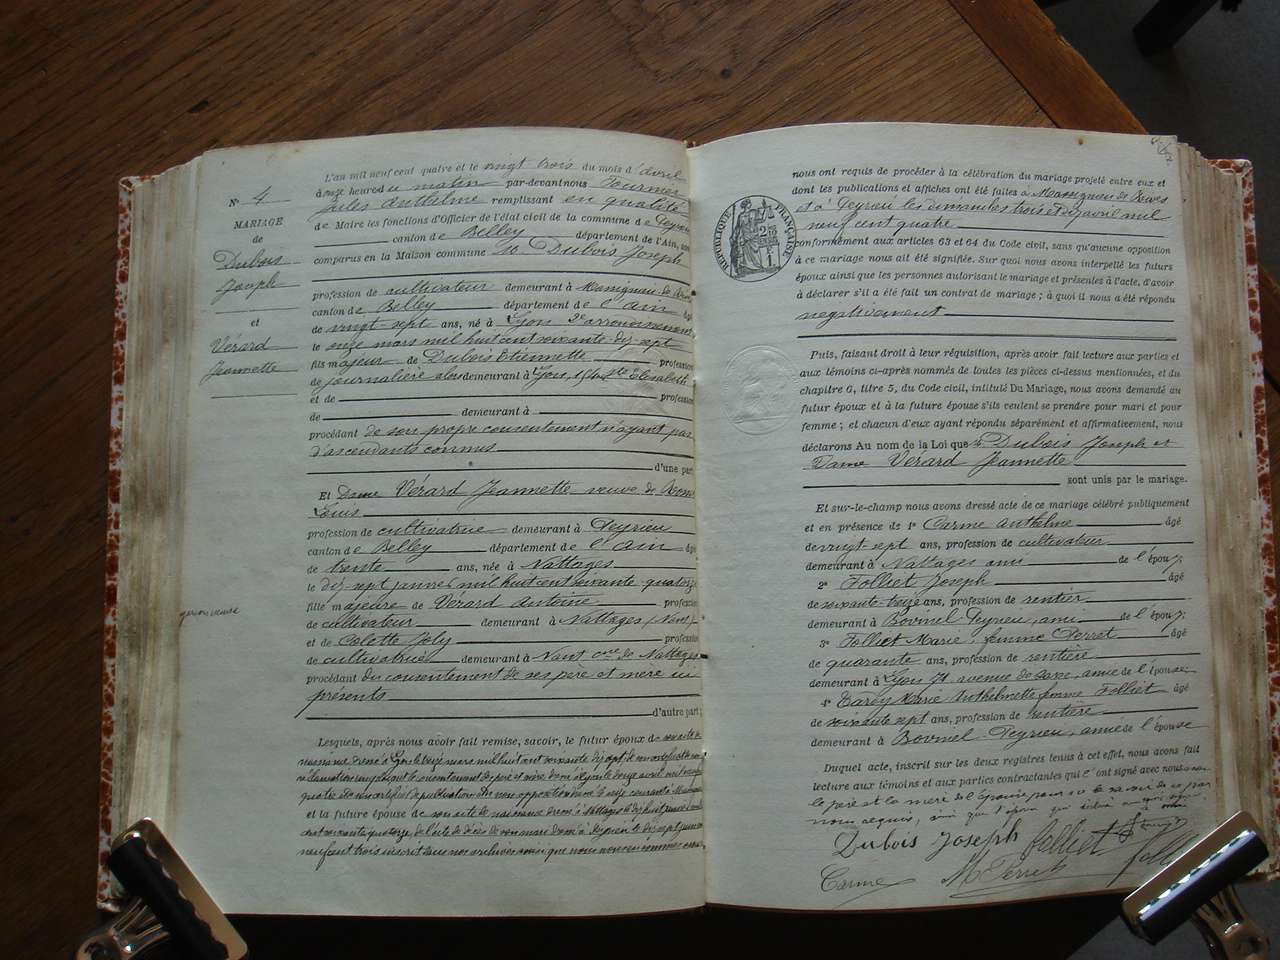 N° 4
MARIAGE
de
Dubois
Joseph
et
Vérard
Jeannette
L'an mil neuf cent quatre et le vingt trois du mois d'avril
à onze heures du matin par-devant nous Fournier
Jules Anthelme remplissant en qualité
de Maire les fonctions d'Officier de l'état civil de la commune de Peyrieu
canton de Belley département de l'Ain, sont
comparus en la Maison commune Dubois Joseph
profession de cultivateur demeurant à Massignieu de Rives
canton de Belley département de l'ain âgé
de vingt-sept ans, né à Lyon 2e arrondissement
le onze mars mil huit cent soixante dix-sept
fils majeur de Dubois Etiennette profession
de journalière alors demeurant à Lyon, Ste Elisabeth
et de profession
de demeurant à
procédant de son propre consentement n'ayant pas
d'ascendants connus
d'une part
Et Dame Vérard Jeannette veuve de
Louis
profession de cultivatrice demeurant à Peyrieu
canton de Belley département de l'ain âgé
de trente ans, née à Nattages
le dix-sept janvier mil huit cent soixante quatorze
fille majeure de Vérard Antoine profession
de cultivateur demeurant à Nattages (Nant)
et de Colette Joly profession
de cultivatrice demeurant à Nant cne de Nattages
procédant du consentement de ses père et mère ici
présents
d'autre part
Lesquels, après nous avoir fait remise, savoir, le futur époux de son acte de
naissance dressé à Lyon le onze mars mil huit cent soixante dix sept
quatre
et la future épouse de son acte de naissance dressé à Nattages le dix huit janvier mil huit
cent soixante quatorze, de l'acte de décès de son mari dressé à Peyrieu le dix sept
neuf cent trois inscrit dans nos archives ainsi que nous
RÉPUBLIQUE FRANÇAISE
nous ont requis de procéder à la célébration du mariage projeté entre eux et
dont les publications et affiches ont été faites à Massignieu de Rives
et à Peyrieu les dimanches trois et dix avril mil
neuf cent quatre
conformément aux articles 63 et 64 du Code civil, sans qu'aucune opposition
à ce mariage nous ait été signifiée. Sur quoi nous avons interpellé les futurs
époux ainsi que les personnes autorisant le mariage et présentes à l'acte, d'avoir
à déclarer s'il a été fait un contrat de mariage ; à quoi il nous a été répondu
négativement
Puis, faisant droit à leur réquisition, après avoir fait lecture aux parties et
aux témoins ci-après nommés de toutes les pièces ci-dessus mentionnées, et du
chapitre 6, titre 5, du Code civil, intitulé Du Mariage, nous avons demandé au
futur époux et à la future épouse s'ils veulent se prendre pour mari et pour
femme ; et chacun d'eux ayant répondu séparément et affirmativement, nous
déclarons Au nom de la Loi que Dubois Joseph et
Dame Vérard Jeannette
sont unis par le mariage.
Et sur-le-champ nous avons dressé acte de ce mariage célébré publiquement
et en présence de 1° Carme Anthelme âgé
de vingt-sept ans, profession de cultivateur
demeurant à Nattages ami de l'époux
2° Folliet Joseph âgé
de soixante-treize ans, profession de rentier
demeurant à Bovinel-Peyrieu, ami de l'époux
3° Folliet Marie, femme Perret âgé
de quarante ans, profession de rentière
demeurant à Lyon 71, avenue de Saxe, amie de l'épouse
4° Marie Anthelmette femme Folliet âgé
de soixante sept ans, profession de rentière
demeurant à Bovinel-Peyrieu, amie de l'épouse
Duquel acte, inscrit sur les deux registres tenus à cet effet, nous avons fait
lecture aux témoins et aux parties contractantes qui l'ont signé avec nous
le père et la mère de l'épouse pour ne le savoir de ce par
nous requis, ainsi que l'épouse qui
Dubois Joseph Folliet
Carme M Perret